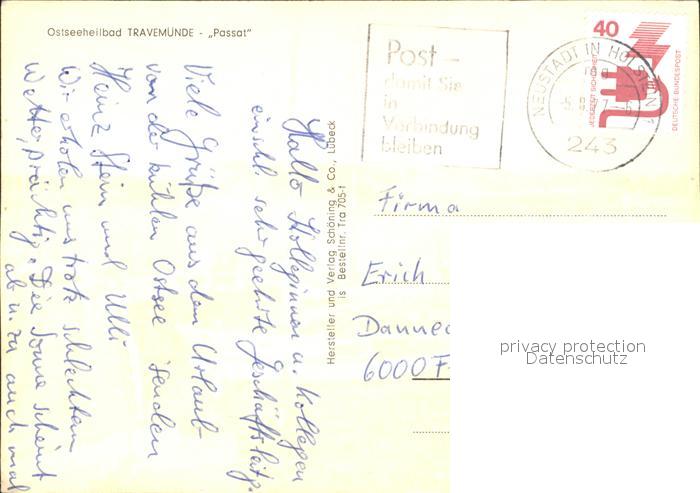 Ostseeheilbad TRAVEMÜNDE - „Passat"
Post -
damit Sie
in
Verbindung
bleiben
NEUSTADT IN HOLST
243
40
JEDERZEIT SICHERHEIT
DEUTSCHE BUNDESPOST
Hallo Kolleginnen u. Kollegen
einschl. sehr geehrte Geschäftsleitg.
Viele Grüße aus dem Urlaub
von der kühlen Ostsee senden
Heinz Stein und Ulli
Wir erholen uns trotz schlechtem
Wetter prächtig. Die Sonne scheint
ab u. zu auch mal
Hersteller und Verlag Schöning & Co., Lübeck
is Bestellnr. Tra 705-1
Firma
Erich
Dannec
6000 F
privacy protection
Datenschutz